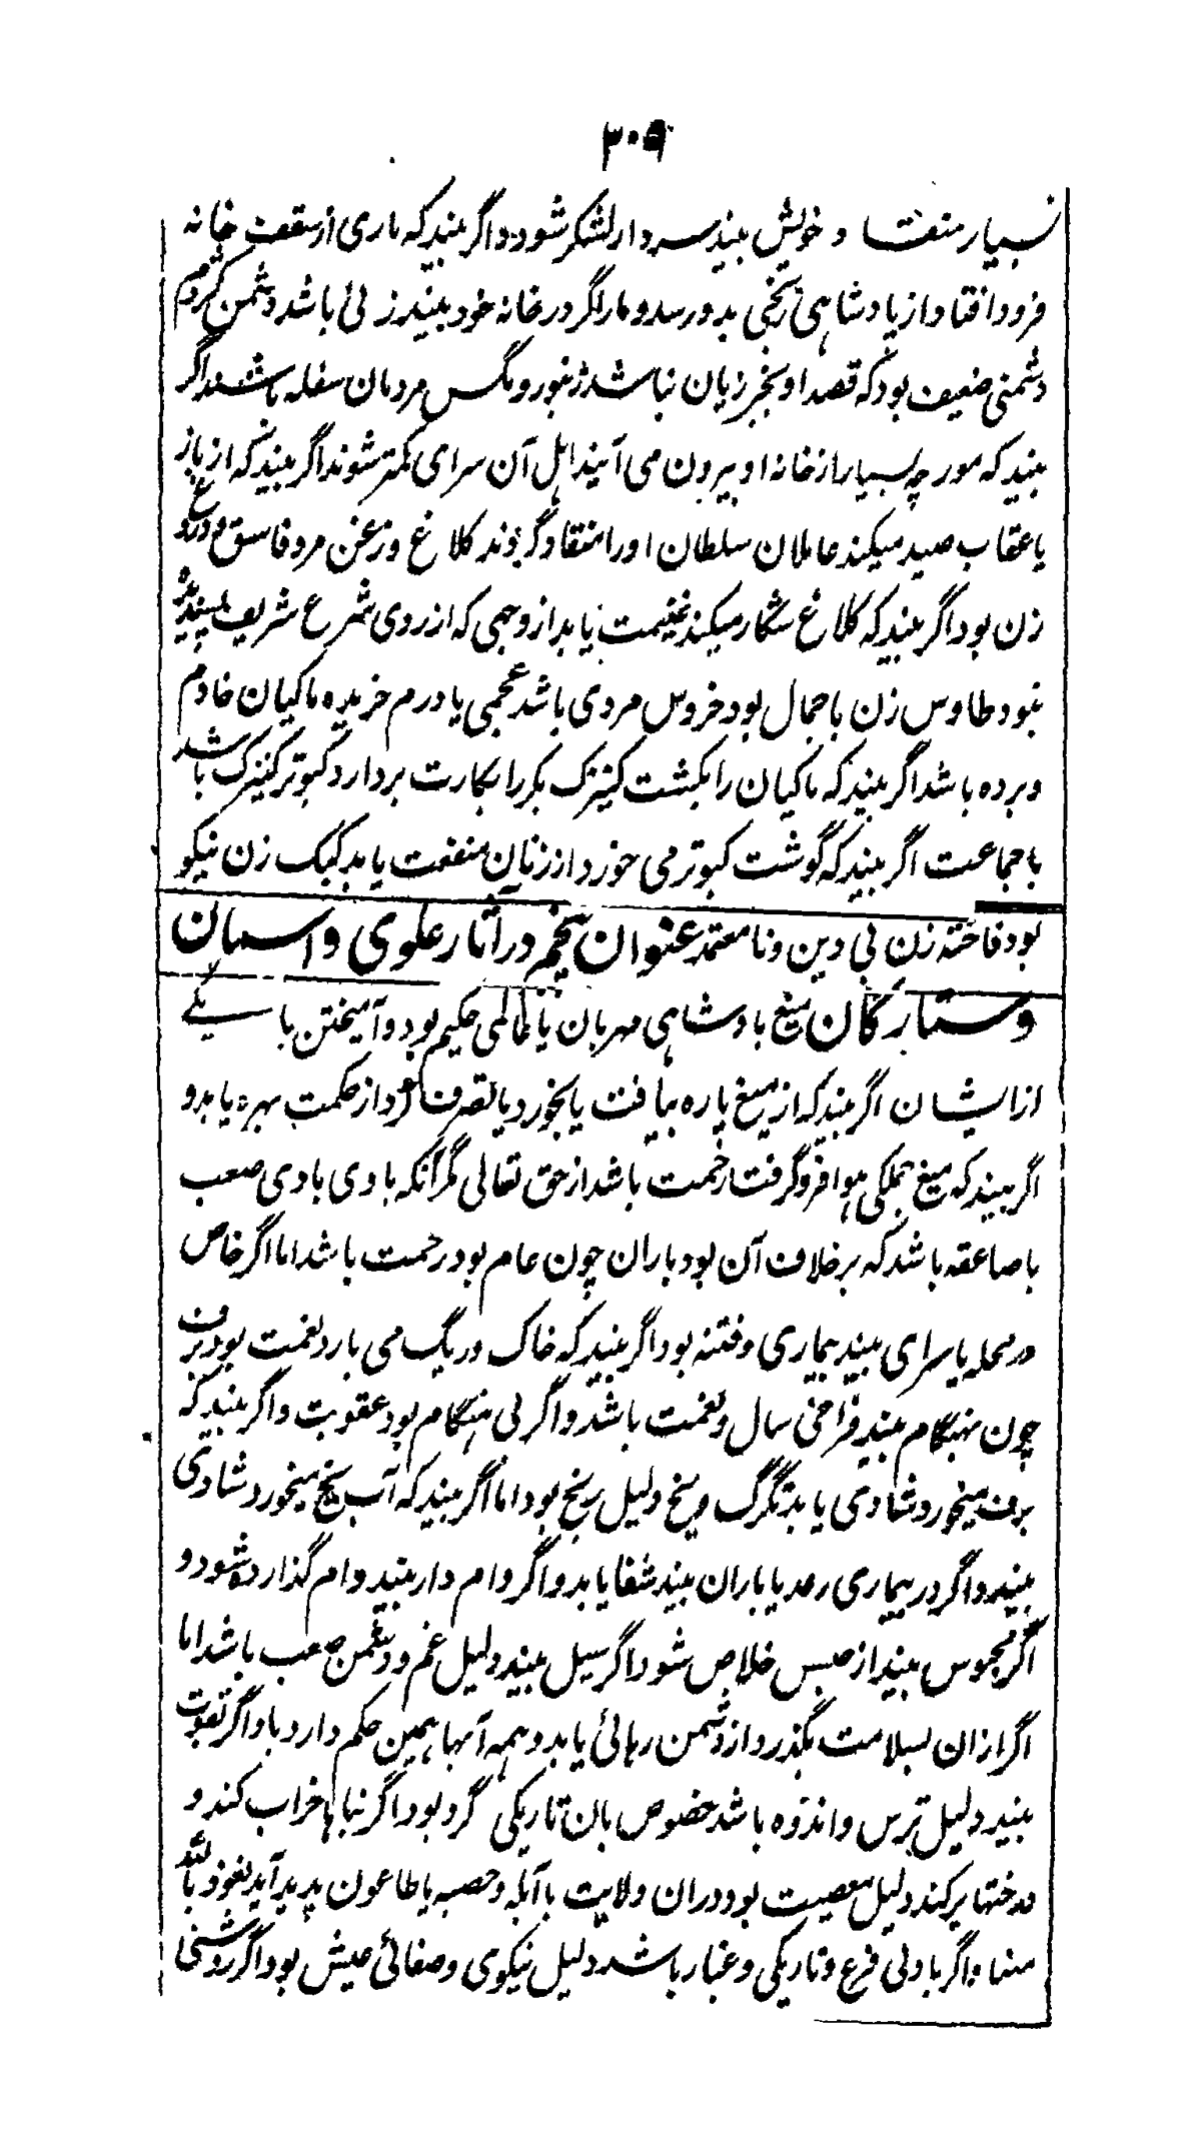 ۳۰۹
بسیار منقاد خویش بیند سردار لشکر شود و اگر بیند که ماری از سقف خانه
فرود افتاد از پادشاهی رنجی بدو رسد و مار اگر در خانه خود بیند زنی باشد دشمن کژدم
دشمنی ضعیف بود که قصد او بجز زیان نباشد زنبور و مگس مردمان سفله باشند اگر
بیند که مورچه بسیار از خانه او بیرون می آیند اهل آن سرای کمتر شوند اگر بیند که از باز
یا عقاب صید میکند عاملان سلطان او را منقاد گردند کلاغ و زغن مرد فاسق و دروغ
زن بود اگر بیند که کلاغ شکار میکند غنیمت یابد از وجهی که از روی شرع شریف پسندیده
نبود طاوس زن با جمال بود خروس مردی باشد عجمی یا درم خریده ماکیان خادم
و برده باشد اگر بیند که ماکیان را بکشت کنیزک بکر را بکارت بردارد کبوتر کنیزک باشد
با جماعت اگر بیند که گوشت کبوتر می خورد از زنان منفعت یابد کبک زن نیکو
بود فاخته زن بی دین و نا معتمد عنوان پنجم در آثار علوی و اسمان
و ستارگان میغ بادشاهی مهربان یا عالمی حکیم بود و آمیختن با یکے
ازایشان اگر بیند که از میغ پاره بیافت یا بخورد یا تصرف کرد از حکمت بهره یابد و
اگر بیند که میغ جملگی هوا فرو گرفت رحمت باشد از حق تعالی مگر آنکه با وی بادی صعب
با صاعقه باشد که بر خلاف آن بود باران چون عام بود رحمت باشد اما اگر خاص
در محله یا سرای بیند بیماری و فتنه بود اگر بیند که خاک و ریگ می بارد نعمت بود برف
چون بهنگام بیند فراخی سال و نعمت باشد و اگر بی هنگام بود عقوبت و اگر بیند که
برف میخورد شادی یابد تگرگ و یخ دلیل رنج بود اما اگر بیند که آب یخ میخورد شادی
بیند و اگر در بیماری رعد یا باران بیند شفا یابد و اگر وام دار بیند وام گذارده شود و
اگر محبوس بیند از حبس خلاص شود اگر سیل بیند دلیل غم و دشمن صعب باشد اما
اگر ازان بسلامت بگذرد از دشمن رهائی یابد و همه آبها همین حکم دارد باد اگر بقوت
بیند دلیل ترس و اندوه باشد خصوص بان تاریکی گرد بود اگر بناها خراب کند و
درختها برکند دلیل معصیت بود دران ولایت با آبله و حصبه یا طاعون پدید آید نعوذ بالله
منها و اگر باد بی فزع و تاریکی و غبار باشد دلیل نیکوی و صفائی عیش بود اگر روشنی